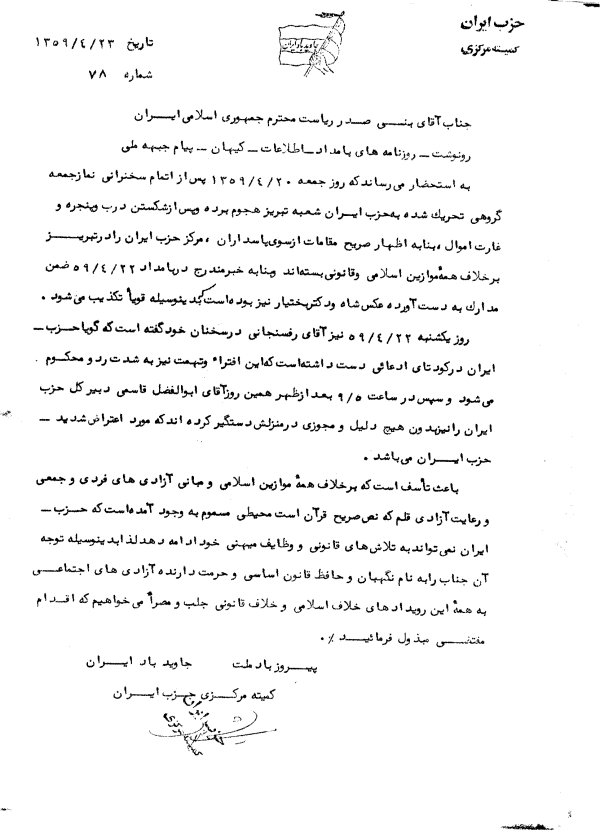 حزب ایران
کمیته مرکزی
جاوید باد ایران
تاریخ ۱۳۵۹/۴/۲۳
شماره ۷۸
جناب آقای بنسی صدر ریاست محترم جمهوری اسلامی ایران
رونوشت ـ روزنامه های بامداد ـ اطلاعات ـ کیهان ـ پیام جبهه ملی
به استحضار می رساند که روز جمعه ۱۳۵۹/۴/۲۰ پس از اتمام سخنرانی نماز جمعه
گروهی تحریك شده به حزب ایران شعبه تبریز هجوم برده و پس از شکستن درب و پنجره و
غارت اموال ، بنابه اظهار صریح مقامات از سوی پاسداران ، مرکز حزب ایران را در تبریز
برخلاف همهٔ موازین اسلامی وقانونی بسته اند وبنابه خبر مندرج در بامداد ۵۹/۴/۲۲ ضمن
مدارك به دست آورده عکس شاه ودکتر بختیار نیز بوده است که بدینوسیله قویاً تکذیب می شود .
روز یکشنبه ۵۹/۴/۲۲ نیز آقای رفسنجانی در سخنان خود گفته است که گویا حزب ـ
ایران در کودتای ادعائی دست داشته است که این افتراء وتهمت نیز به شدت رد و محکوم
می شود و سپس در ساعت ۹/۵ بعد از ظهر همین روز آقای ابوالفضل قاسمی دبیر کل حزب
ایران را نیز بدون هیچ دلیل و مجوزی در منزلش دستگیر کرده اند که مورد اعتراض شدید ـ
حزب ایران می باشد .
باعث تأسف است که برخلاف همهٔ موازین اسلامی و مبانی آزادی های فردی و جمعی
و رعایت آزادی قلم که نص صریح قرآن است محیطی مسموم به وجود آمده است که حزب ـ
ایران نمی تواند به تلاش های قانونی و وظایف میهنی خود ادامه دهد لذا بدینوسیله توجه
آن جناب را به نام نگهبان و حافظ قانون اساسی و حرمت دارنده آزادی های اجتماعی
به همهٔ این رویدادهای خلاف اسلامی و خلاف قانونی جلب و مصراً می خواهیم که اقدام
مقتضی مبذول فرمائید ./
پیروز باد ملت جاوید باد ایران
کمیته مرکزی حزب ایران
حزب ایران
کمیته مرکزی